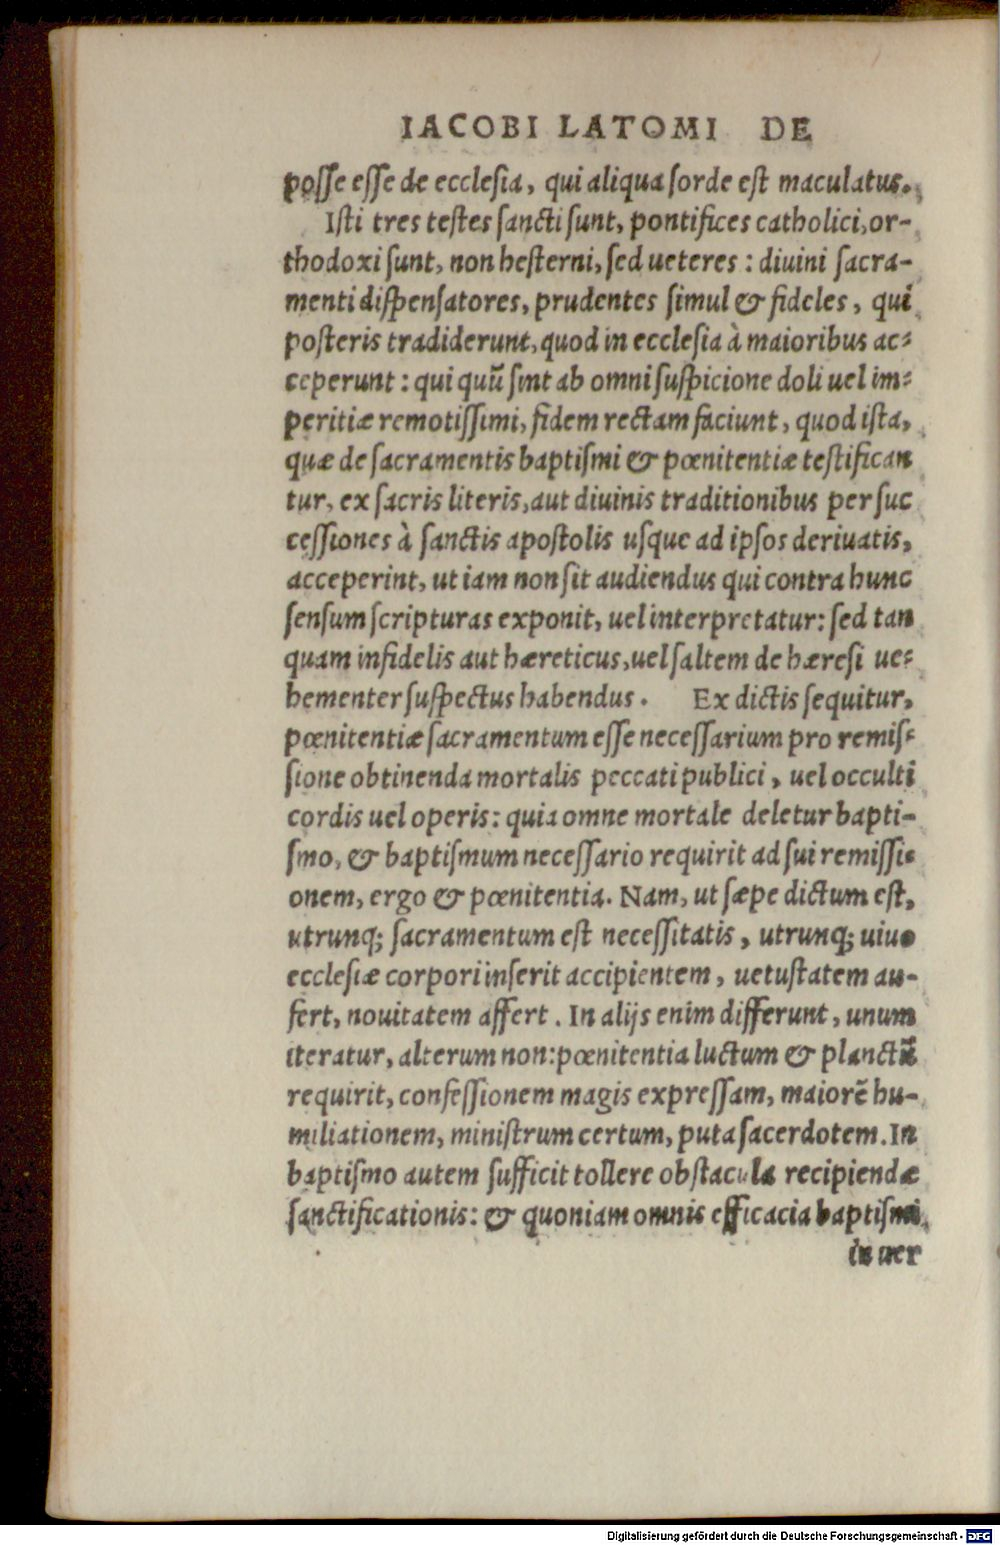 IACOBI LATOMI DE
posse esse de ecclesia, qui aliqua sorde est maculatus.
Isti tres testes sancti sunt, pontifices catholici, or-
thodoxi sunt, non hesterni, sed ueteres : diuini sacra-
menti dispensatores, prudentes simul & fideles, qui
posteris tradiderunt, quod in ecclesia à maioribus ac-
ceperunt : qui quũ sint ab omni suspicione doli uel im-
peritiæ remotissimi, fidem rectam faciunt, quod ista,
quæ de sacramentis baptismi & pœnitentiæ testifican
tur, ex sacris literis, aut diuinis traditionibus per suc
cessiones à sanctis apostolis usque ad ipsos deriuatis,
acceperint, ut iam non sit audiendus qui contra hunc
sensum scripturas exponit, uel interpretatur: sed tan
quam infidelis aut hæreticus, uel saltem de hæresi ue-
hementer suspectus habendus. Ex dictis sequitur,
pœnitentiæ sacramentum esse necessarium pro remis-
sione obtinenda mortalis peccati publici, uel occulti
cordis uel operis: quia omne mortale deletur bapti-
smo, & baptismum necessario requirit ad sui remissi-
onem, ergo & pœnitentia. Nam, ut sæpe dictum est,
utrunq; sacramentum est necessitatis, utrunq; uiuo
ecclesiæ corpori inserit accipientem, uetustatem au-
fert, nouitatem affert. In alijs enim differunt, unum
iteratur, alterum non: pœnitentia luctum & planctũ
requirit, confessionem magis expressam, maiorẽ hu-
miliationem, ministrum certum, puta sacerdotem. In
baptismo autem sufficit tollere obstacula recipiendæ
sanctificationis: & quoniam omnis efficacia baptismi
in uer
Digitalisierung gefördert durch die Deutsche Forschungsgemeinschaft - DFG